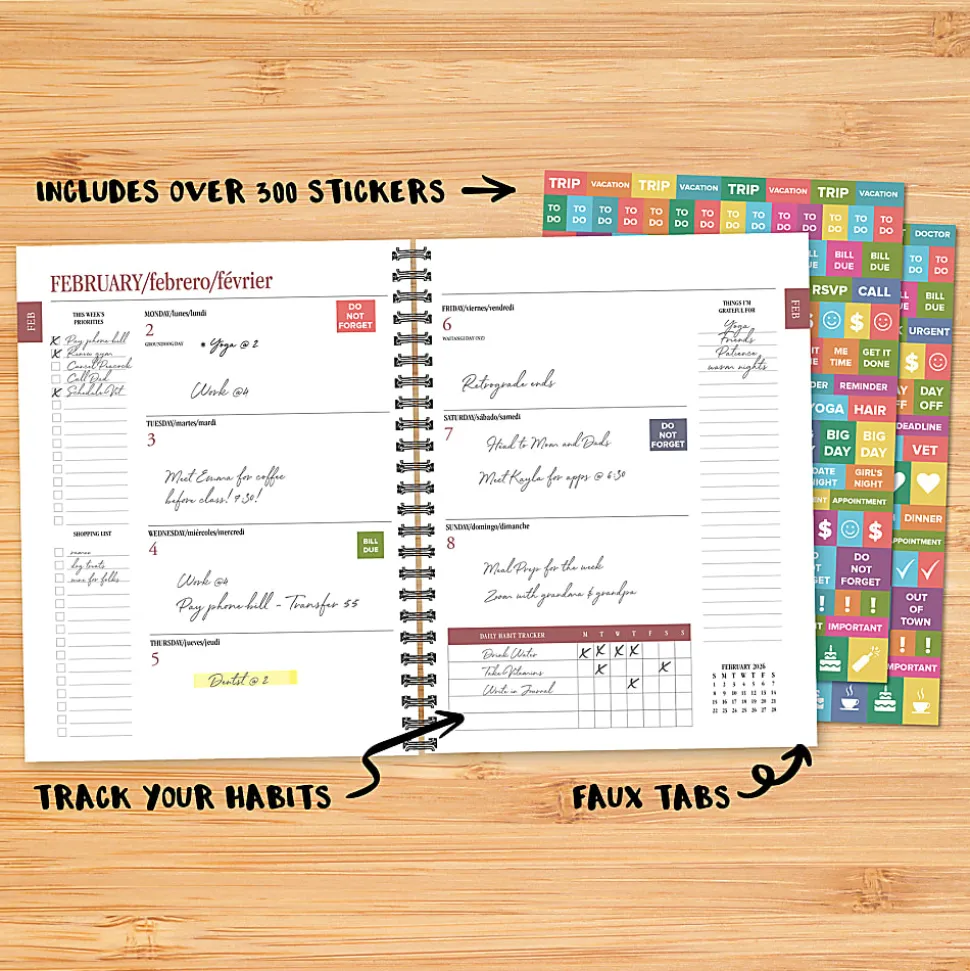 INCLUDES OVER 300 STICKERS
TRIP VACATION TRIP VACATION TRIP VACATION TRIP VACATION
TO DO TO DO TO DO TO DO TO DO TO DO TO DO TO DO TO DO TO DO TO DO TO DO TO DO TO DO
DOCTOR
BILL DUE BILL DUE TO DO TO DO
RSVP CALL BILL DUE
$ URGENT
ME TIME GET IT DONE $
REMINDER DAY OFF
YOGA HAIR DEADLINE
BIG DAY BIG DAY VET
DATE NIGHT GIRL'S NIGHT
APPOINTMENT
$ $ DINNER
APPOINTMENT
DO NOT FORGET
! ! ! OUT OF TOWN
IMPORTANT ! !
IMPORTANT
FEBRUARY/febrero/février
FEB
THIS WEEK'S
PRIORITIES
X Pay phone bill
X Renew gym
Cancel Peacock
Call Dad
X Schedule Vet
SHOPPING LIST
dog treats
wine for folks
MONDAY/lunes/lundi
2
GROUNDHOG DAY
• Yoga @ 2
DO
NOT
FORGET
Work @4
TUESDAY/martes/mardi
3
Meet Emma for coffee
before class! 7:30!
WEDNESDAY/miércoles/mercredi
4
BILL
DUE
Work @4
Pay phone bill - Transfer $$
THURSDAY/jueves/jeudi
5
Dentist @ 2
FRIDAY/viernes/vendredi
6
WAITANGI DAY (NZ)
Retrograde ends
SATURDAY/sábado/samedi
7
DO
NOT
FORGET
Head to Mom and Dads
Meet Kayla for apps @ 6:30
SUNDAY/domingo/dimanche
8
Meal Prep for the week
Zoom with grandma & grandpa
DAILY HABIT TRACKER M T W T F S S
Drink Water X X X X
Take Vitamins X X
Write in Journal X
THINGS I'M
GRATEFUL FOR
Yoga
Friends
Patience
warm nights
FEB
FEBRUARY 2026
S M T W T F S
1 2 3 4 5 6 7
8 9 10 11 12 13 14
15 16 17 18 19 20 21
22 23 24 25 26 27 28
TRACK YOUR HABITS
FAUX TABS